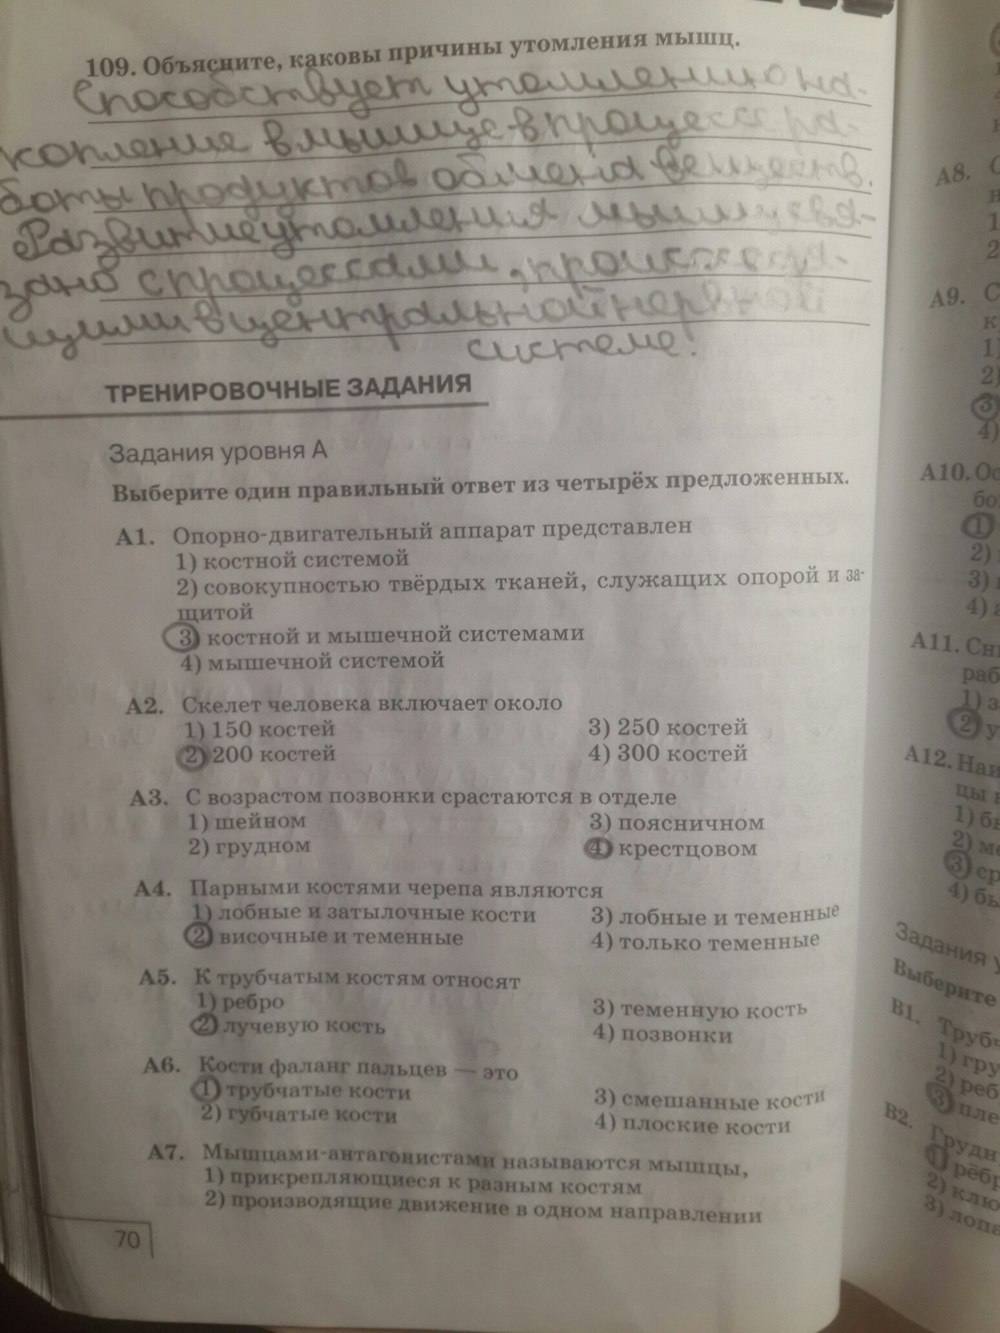 109. Объясните, каковы причины утомления мышц.
Способствует утомлению на-
копление в мышце в процессе ра-
боты продуктов обмена веществ.
Развитие утомления мышц свя-
зано с процессами, происходя-
щими в центральной нервной
системе!
ТРЕНИРОВОЧНЫЕ ЗАДАНИЯ
Задания уровня А
Выберите один правильный ответ из четырёх предложенных.
А1. Опорно-двигательный аппарат представлен
1) костной системой
2) совокупностью твёрдых тканей, служащих опорой и за-
щитой
3) костной и мышечной системами
4) мышечной системой
А2. Скелет человека включает около
1) 150 костей 3) 250 костей
2) 200 костей 4) 300 костей
А3. С возрастом позвонки срастаются в отделе
1) шейном 3) поясничном
2) грудном 4) крестцовом
А4. Парными костями черепа являются
1) лобные и затылочные кости 3) лобные и теменные
2) височные и теменные 4) только теменные
А5. К трубчатым костям относят
1) ребро 3) теменную кость
2) лучевую кость 4) позвонки
А6. Кости фаланг пальцев — это
1) трубчатые кости 3) смешанные кости
2) губчатые кости 4) плоские кости
А7. Мышцами-антагонистами называются мышцы,
1) прикрепляющиеся к разным костям
2) производящие движение в одном направлении
70
А8.
1
2
А9.
1)
2)
3)
4)
А10.
1
2)
3)
4)
А11.
1)
2
А12.
1)
2)
3
4)
Задания
Выберите
В1.
1)
2)
3
В2.
1
2)
3)